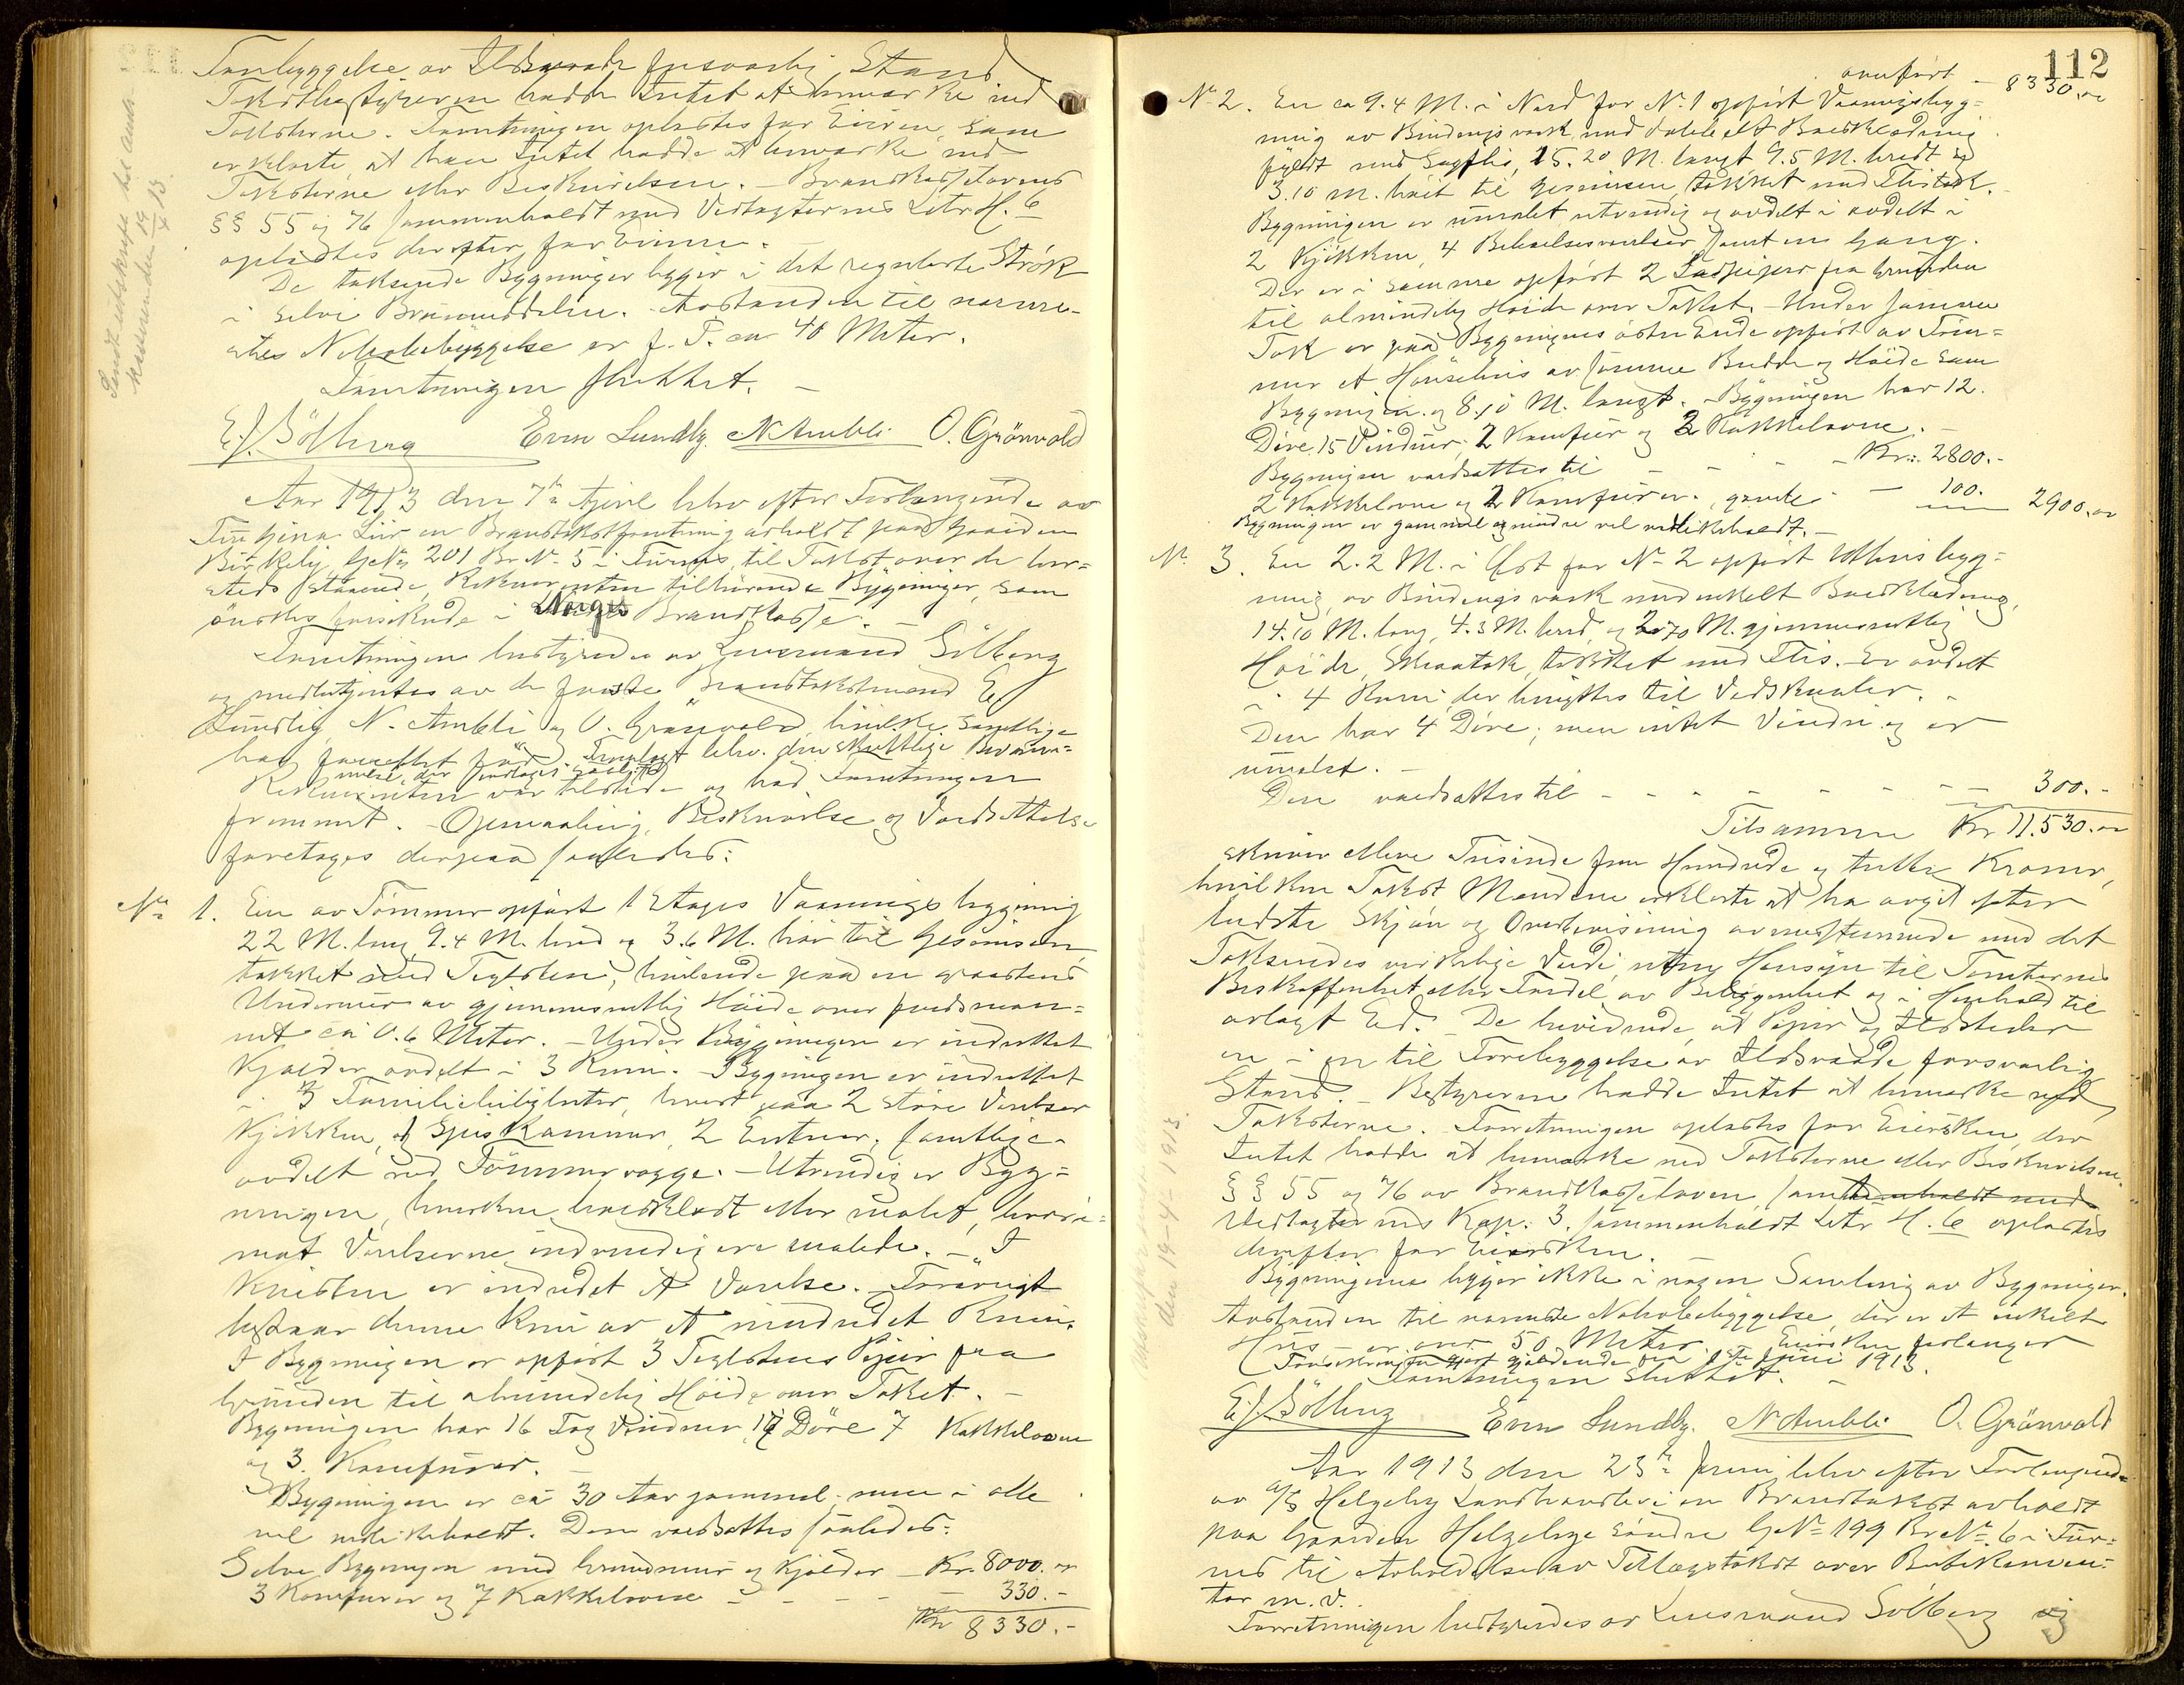 Forebyggelse av Ildsvaade forsvarlig Stand
Takstbestyreren hadde Intet at bemærke ved
Taksterne. Forretningen oplæstes for Eieren, som
erklærte, at han Intet hadde at bemærke ved
Taksterne eller Beskrivelsen. – Brandkasselovens
§§ 55 og 76 sammenholdt med Vedtægternes Litr H. 6
oplæstes derefter for Eieren. –
De takserede Bygninger ligger i det regulerte Strøk
i selve Brumunddalen. Avstanden til nærme-
stes Nabobebyggelse er f. T. ca 40 Meter.
Forretningen sluttet. –
E. J. Sölberg Even Lundby. N Ambli O. Grönvold
Aar 1913 den 7de April blev efter Forlangende av
Gina Liër en Brandtakstforretning avholdt paa Gaarden
Birkely G. No 201 Br No 5 i Furnes, til Takst over de her-
steds staaende, Rekvirenten tilhørende Bygninger, som
ønskes forsikrede i Norges Brandkasse. –
Forretningen bestyredes av Lensmand Sölberg
og medbetjentes av de faste Brandtakstmænd E
Lundby, N. Ambli og O. Grönvold, hvilke samtlige
har forrettet før. Fremlagt blev den skriftlige Bevidne-
melse, der
Rekvirenten var tilstede og bad Forretningen
fremmet. – Opmaaling, Beskrivelse og Værdsættelse
foretoges derpaa saaledes:
No 1. En av Tømmer opført 1 Etages Vaaningsbygning
22 M. lang 9.4 M. bred og 3.6 M. høi til Gesimsen,
tækket med Teglsten, hvilende paa en graastens
Undermur av gjennemsnitlig Høide over Jordsmon-
net ca 0.6 Meter. – Under Bygningen er indrettet
Kjælder avdelt i 3 Rum. – Bygningen er indrettet
i 3 Familieleiligheter, hvert paa 2 større Værelser
Kjøkken, et Spiskammer, 2 Entreer, samtlige
avdelt ved Tømmervægge. – Utvendig er Byg-
ningen, hverken bordklædt eller malet, hvori-
mot Værelserne indvendig ere malede. – I
Kvisten er indredet et Værelse. Forøvrigt
bestaar denne kun av et uindredet Rum.
I Bygningen er opført 3 Teglstens Piper fra
Grunden til almindelig Høide over Taket. –
Bygningen har 16 Fag Vinduer, 17 Döre 7 Kakkelovne
og 3. Komfurer. –
Bygningen er ca 30 Aar gammel, men i alle
vel vedlikeholdt. Den værdsættes saaledes:
Selve Bygningen med Grundmur og Kjælder – Kr. 8000.00
3 Komfurer og 7 Kakkelovne – – – – 330.-
Kr 8330.-
Sendt utskrift til Brand-
kassen den 19/4 13.
112
overført – 8330.00
No 2. En ca 9.4 M. i Nord for No 1 opført Vaaningsbyg-
ning av Bindingsverk med dobbelt Bordklædning
fyldt med Sagflis, 15.20 M. langt 9.5 M. bredt og
3.10 M. høit til Gesimsen, tækket med Flistak.
Bygningen er umalet utvendig og avdelt i avdelt i
2 Kjøkken, 4 Beboelsesværelser samt en Gang.
Der er i samme opført 2 Piper fra Grunden
til almindelig Høide over Taket. – Under samme
Tak er paa Bygningens østre Ende opført av Töm-
mer et Hønsehus av samme Bredde og Høide som
Bygningen og 8.10 M. langt. – Bygningen har 12.
Döre, 15 Vinduer, 2 Komfur og 2 Kakkelovne. –
Bygningen værdsættes til – – – – Kr. 2800.-
2 Kakkelovne og 2 Komfurer, gamle – – 100. 2900.00
Bygningen er gammel og mindre vel vedlikeholdt. –
No 3. En 2.2 M. i Øst for No 2 opført Uthusbyg-
ning, av Bindingsverk med enkelt Bordklædning,
14.10 M. lang, 4.3 M. bred, og 2.70 M. gjennemsnitlig
Høide, Skraatak, tækket med Flis. – Er avdelt
i 4 Rum der benyttes til Vedskjuler. –
Den har 4 Döre, men intet Vindu og er
umalt. –
Den værdsættes til – – – – – – – – 300.-
Tilsammen Kr 11.530.00
skriver elleve Tusinde fem Hundrede og tretti Kroner,
hvilken Takst Mændene erklærte at ha avgit efter
bedste Skjøn og Overbevisning overensstemmende med det
Takseredes virkelige Værdi, uten Hensyn til Tomternes
Beskaffenhet eller Fordel av Beliggenhet og i Henhold til
avlagt Ed. – De bevidnede, at Piper og Ildsteder
er i en til Forebyggelse av Ildsvaade forsvarlig
Stand. – Bestyreren hadde Intet at bemærke ved
Taksterne. – Forretningen oplæstes for Eiersken, der
Intet hadde at bemærke ved Taksterne eller Beskrivelsen.
§§ 55 og 76 av Brandkasseloven, sammenholdt med
Vedtægternes Kap. 3. sammenholdt Litr H. 6 oplæstes
derefter for Eiersken.
Bygningerne ligger ikke i nogen Samling av Bygninger.
Avstanden til nærmeste Nabobebyggelse, der er et enkelt
Hus – er over 50 Meter. – Eiersken forlanger
Forsikringen gjort gjældende fra 1ste Juni 1913.
Forretningen sluttet. –
E. J. Sölberg Even Lundby. N Ambli O. Grönvold
Aar 1913 den 23de Juni blev efter Forlangende
av A/S Helgeby Landhandleri en Brandtakst avholdt
paa Gaarden Helgeby søndre G. No 199 Br No 6 i Fur-
nes til Avholdelse av Tillægstakst over Butikinven-
tar m. v.
Forretningen bestyredes av Lensmand Sölberg og
den 19-4-1913.